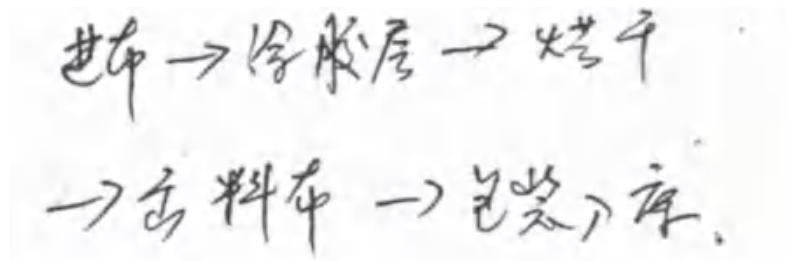 进布→涂胶层→烘干
→出料布→包装入库.